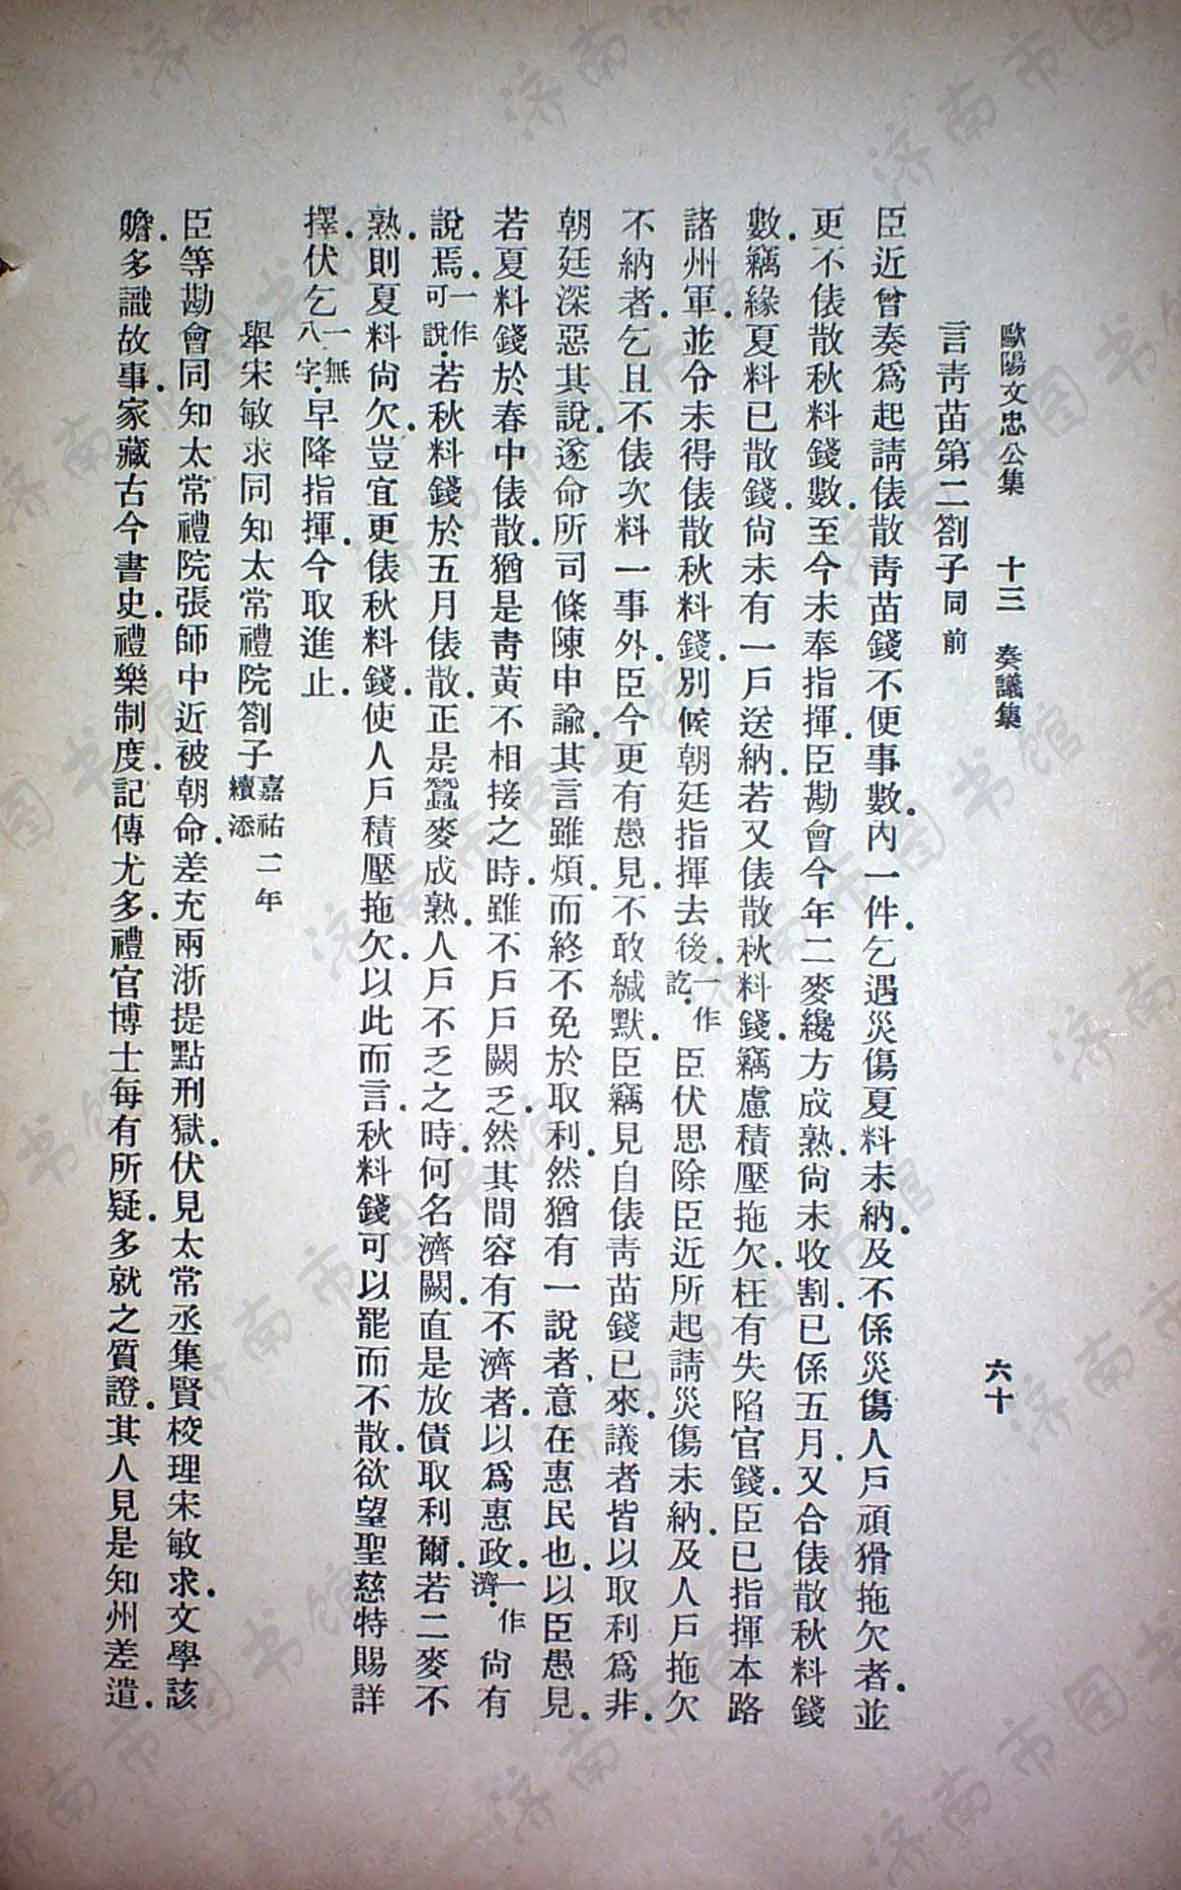 歐陽文忠公集　十三　奏議集　六十
言靑苗第二劄子同前
臣近曾奏爲起請俵散靑苗錢不便事數內一件乞遇災傷夏料未納及不係災傷人戶頑猾拖欠者並
更不俵散秋料錢數至今未奉指揮臣勘會今年二麥纔方成熟尙未收割已係五月又合俵散秋料錢
數竊緣夏料已散錢尙未有一戶送納若又俵散秋料錢竊慮積壓拖欠枉有失陷官錢臣已指揮本路
諸州軍並令未得俵散秋料錢別候朝廷指揮去後一作訖臣伏思除臣近所起請災傷未納及人戶拖欠
不納者乞且不俵次料一事外臣今更有愚見不敢緘默臣竊見自俵靑苗錢已來議者皆以取利爲非
朝廷深惡其說遂命所司條陳申諭其言雖煩而終不免於取利然猶有一說者意在惠民也以臣愚見
若夏料錢於春中俵散猶是靑黃不相接之時雖不戶戶闕乏然其間容有不濟者以爲惠政一作濟尙有
說焉一作可說若秋料錢於五月俵散正是蠶麥成熟人戶不乏之時何名濟闕直是放債取利爾若二麥不
熟則夏料尙欠豈宜更俵秋料錢使人戶積壓拖欠以此而言秋料錢可以罷而不散欲望聖慈特賜詳
擇伏乞一無八字早降指揮今取進止
舉宋敏求同知太常禮院劄子嘉祐二年續添
臣等勘會同知太常禮院張師中近被朝命差充兩浙提點刑獄伏見太常丞集賢校理宋敏求文學該
贍多識故事家藏古今書史禮樂制度記傳尤多禮官博士每有所疑多就之質證其人見是知州差遣
济南市图书馆